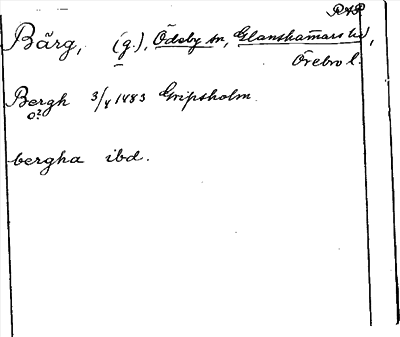 RAP
Bärg, (g.), Ödeby sn, Glanshammars hd,
Örebro l.
Bergh 3/4 1483 Gripsholm.
o?
bergha ibd.